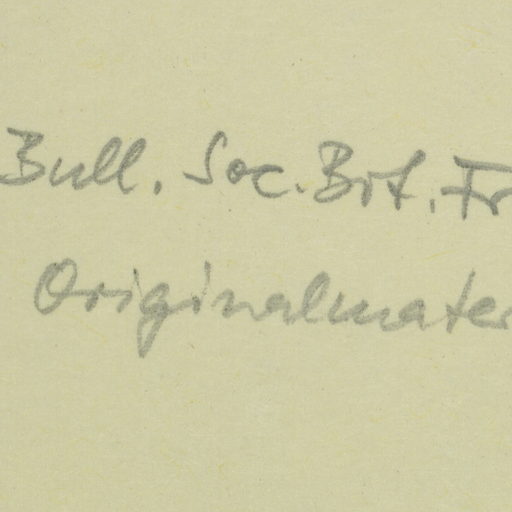 Bull. Soc. Bot. Fr
Originalmater